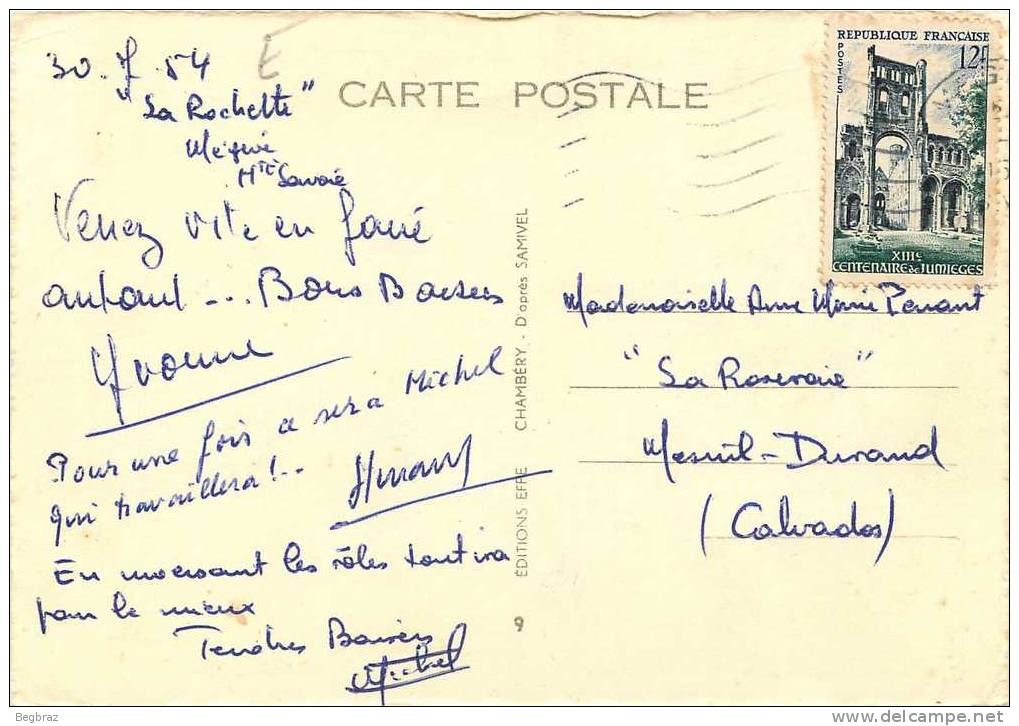 30.7.54
"La Rochette"
Megève
Hte Savoie
CARTE POSTALE
REPUBLIQUE FRANÇAISE
POSTES
12F
XIIIE
CENTENAIRE de JUMIEGES
Venez vite en faire
autant... Bons Baisers
Yvonne
Pour une fois ce sera Michel
qui travaillera!..
En inversant les rôles tout ira
pour le mieux
Tendres Baisers
Michel
EDITIONS EFFE CHAMBÉRY . D'après SAMIVEL
9
Mademoiselle Anne Marie Penant
"La Roseraie"
Mesnil-Durand
(Calvados)
Begbraz
www.delcampe.net